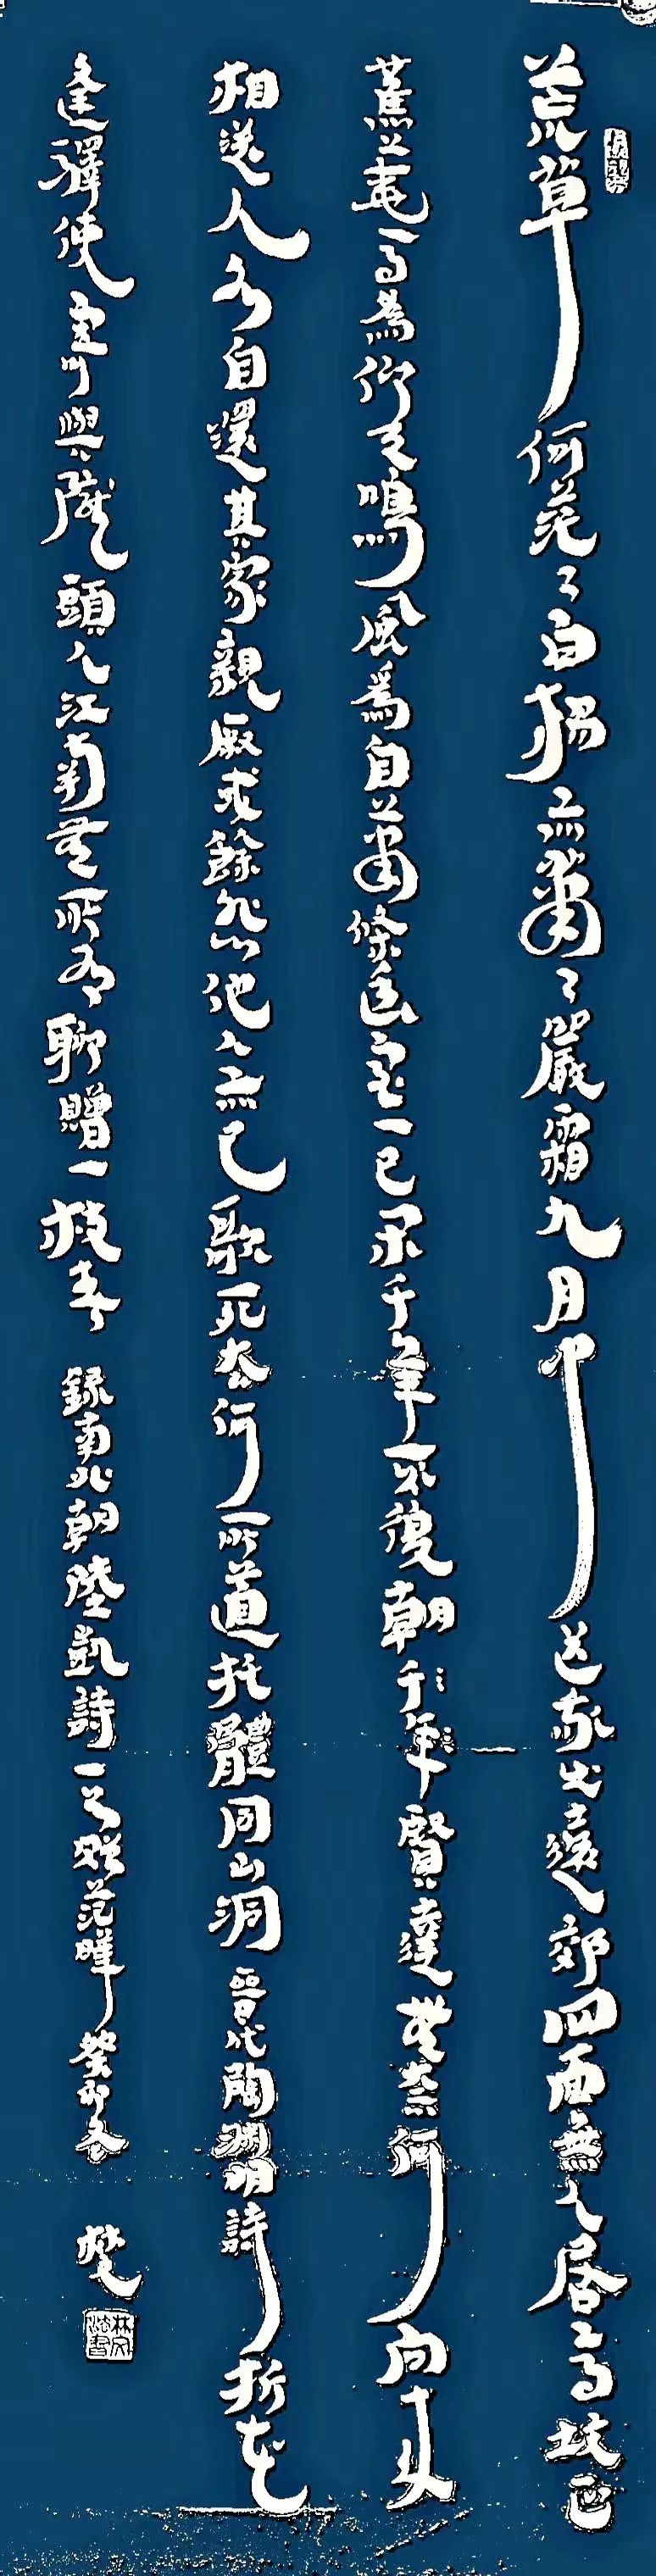 荒草何茫々白楊亦蕭々嚴霜九月中送我出遠郊四面無人居高墳正
蕉蕘馬為仰天鳴風為自蕭條幽室一已閉千年不復朝千年賢達無奈何向來
相送人各自還其家親戚或餘悲他人亦已歌死去何所道托體同山洞晉代陶淵明詩折花
逢驛使寄與隴頭人江南無所有聊贈一枝春錄南北朝陸凱詩一首贈范曄癸卯冬